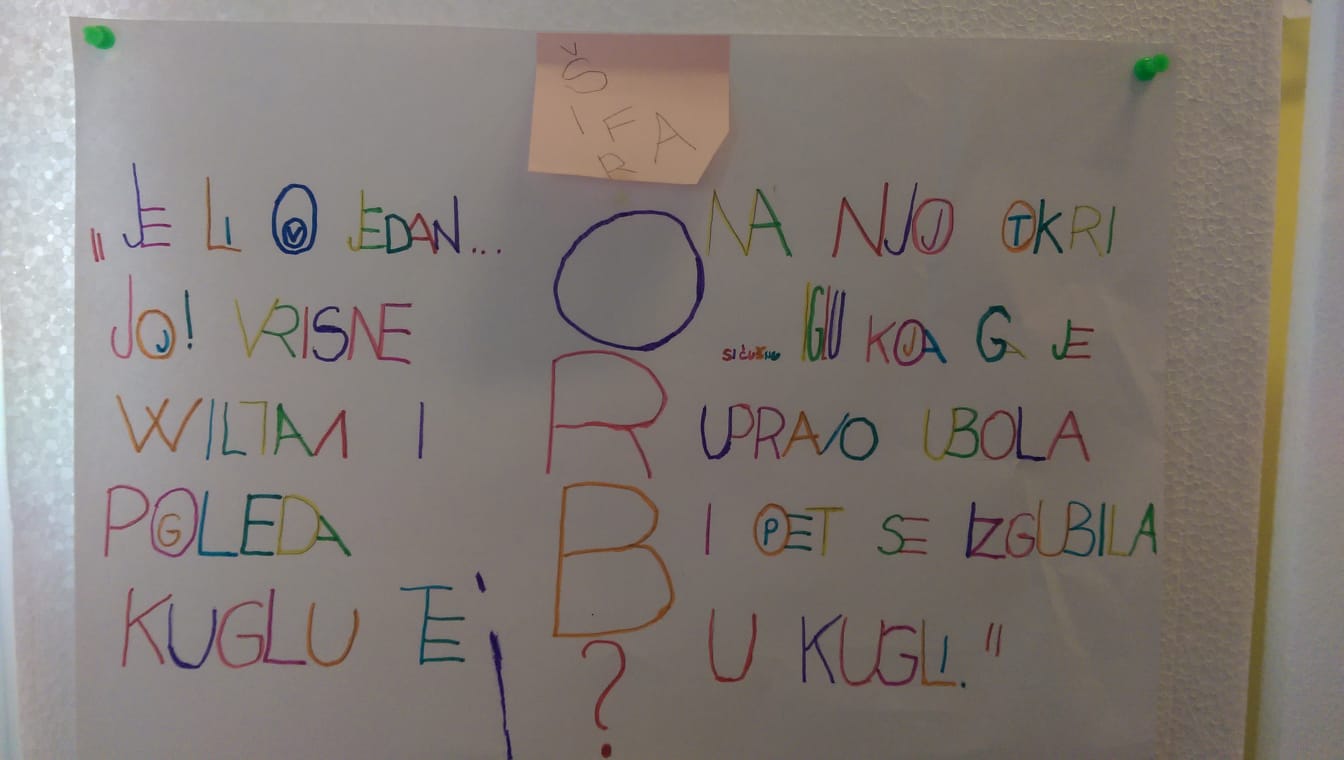 ŠIFRA
„JE LI OVO JEDAN...
JOJ! VRISNE
WILLIAM I
POGLEDA
KUGLU TE
ORB?
NA NJOJ OTKRI
SIĆUŠNU IGLU KOJA GA JE
UPRAVO UBOLA
I OPET SE IZGUBILA
U KUGLI."